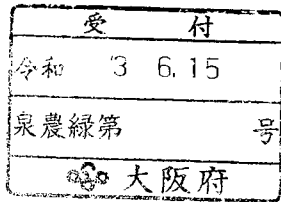 受付
令和 '3 6.15
泉農緑第 号
大阪府